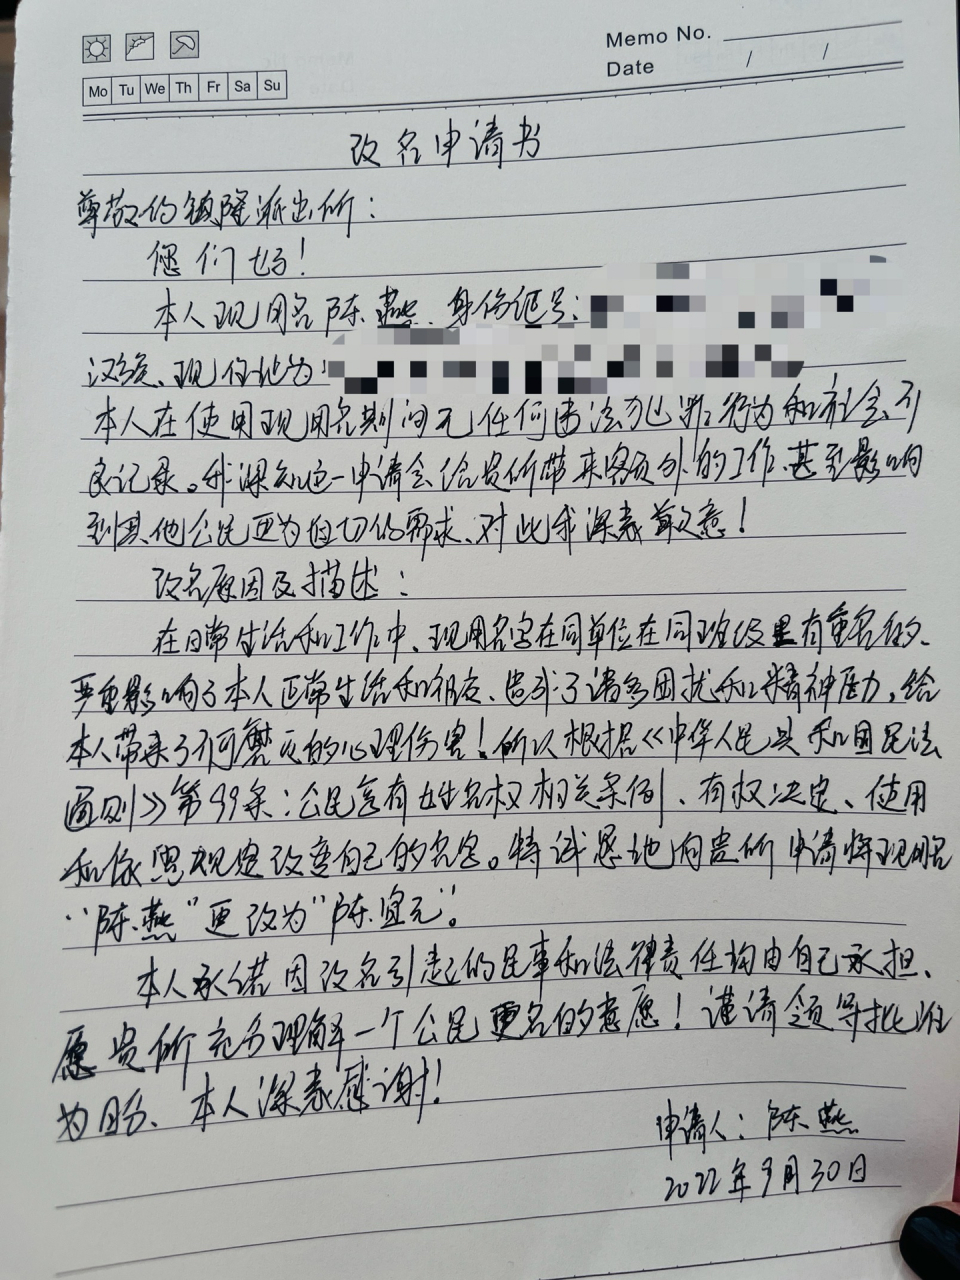 Memo No.
Date / /
Mo Tu We Th Fr Sa Su
改名申请书
尊敬的镇隆派出所：
您们好！
本人现用名陈燕、身份证号：
汉族、现住地为：
本人在使用现用名期间无任何违法犯罪行为和社会不
良记录。我深知这一申请会给贵所带来额外的工作、甚至影响
到其他公民更为迫切的需求、对此我深表歉意！
改名原因及描述：
在日常生活和工作中、现用名字在同单位在同班级里有重名的、
严重影响了本人正常生活和社交、造成了诸多困扰和精神压力，给
本人带来了不可磨灭的心理伤害！所以根据《中华人民共和国民法
通则》第99条：公民享有姓名权相关条例、有权决定、使用
和依照规定改变自己的名字。特诚恳地向贵所申请将现用名
“陈燕”更改为“陈宜元”。
本人承诺因改名引起的民事和法律责任均由自己承担、
愿贵所充分理解一个公民更名的意愿！谨请领导批准
为盼、本人深表感谢！
申请人：陈燕
2022年9月30日